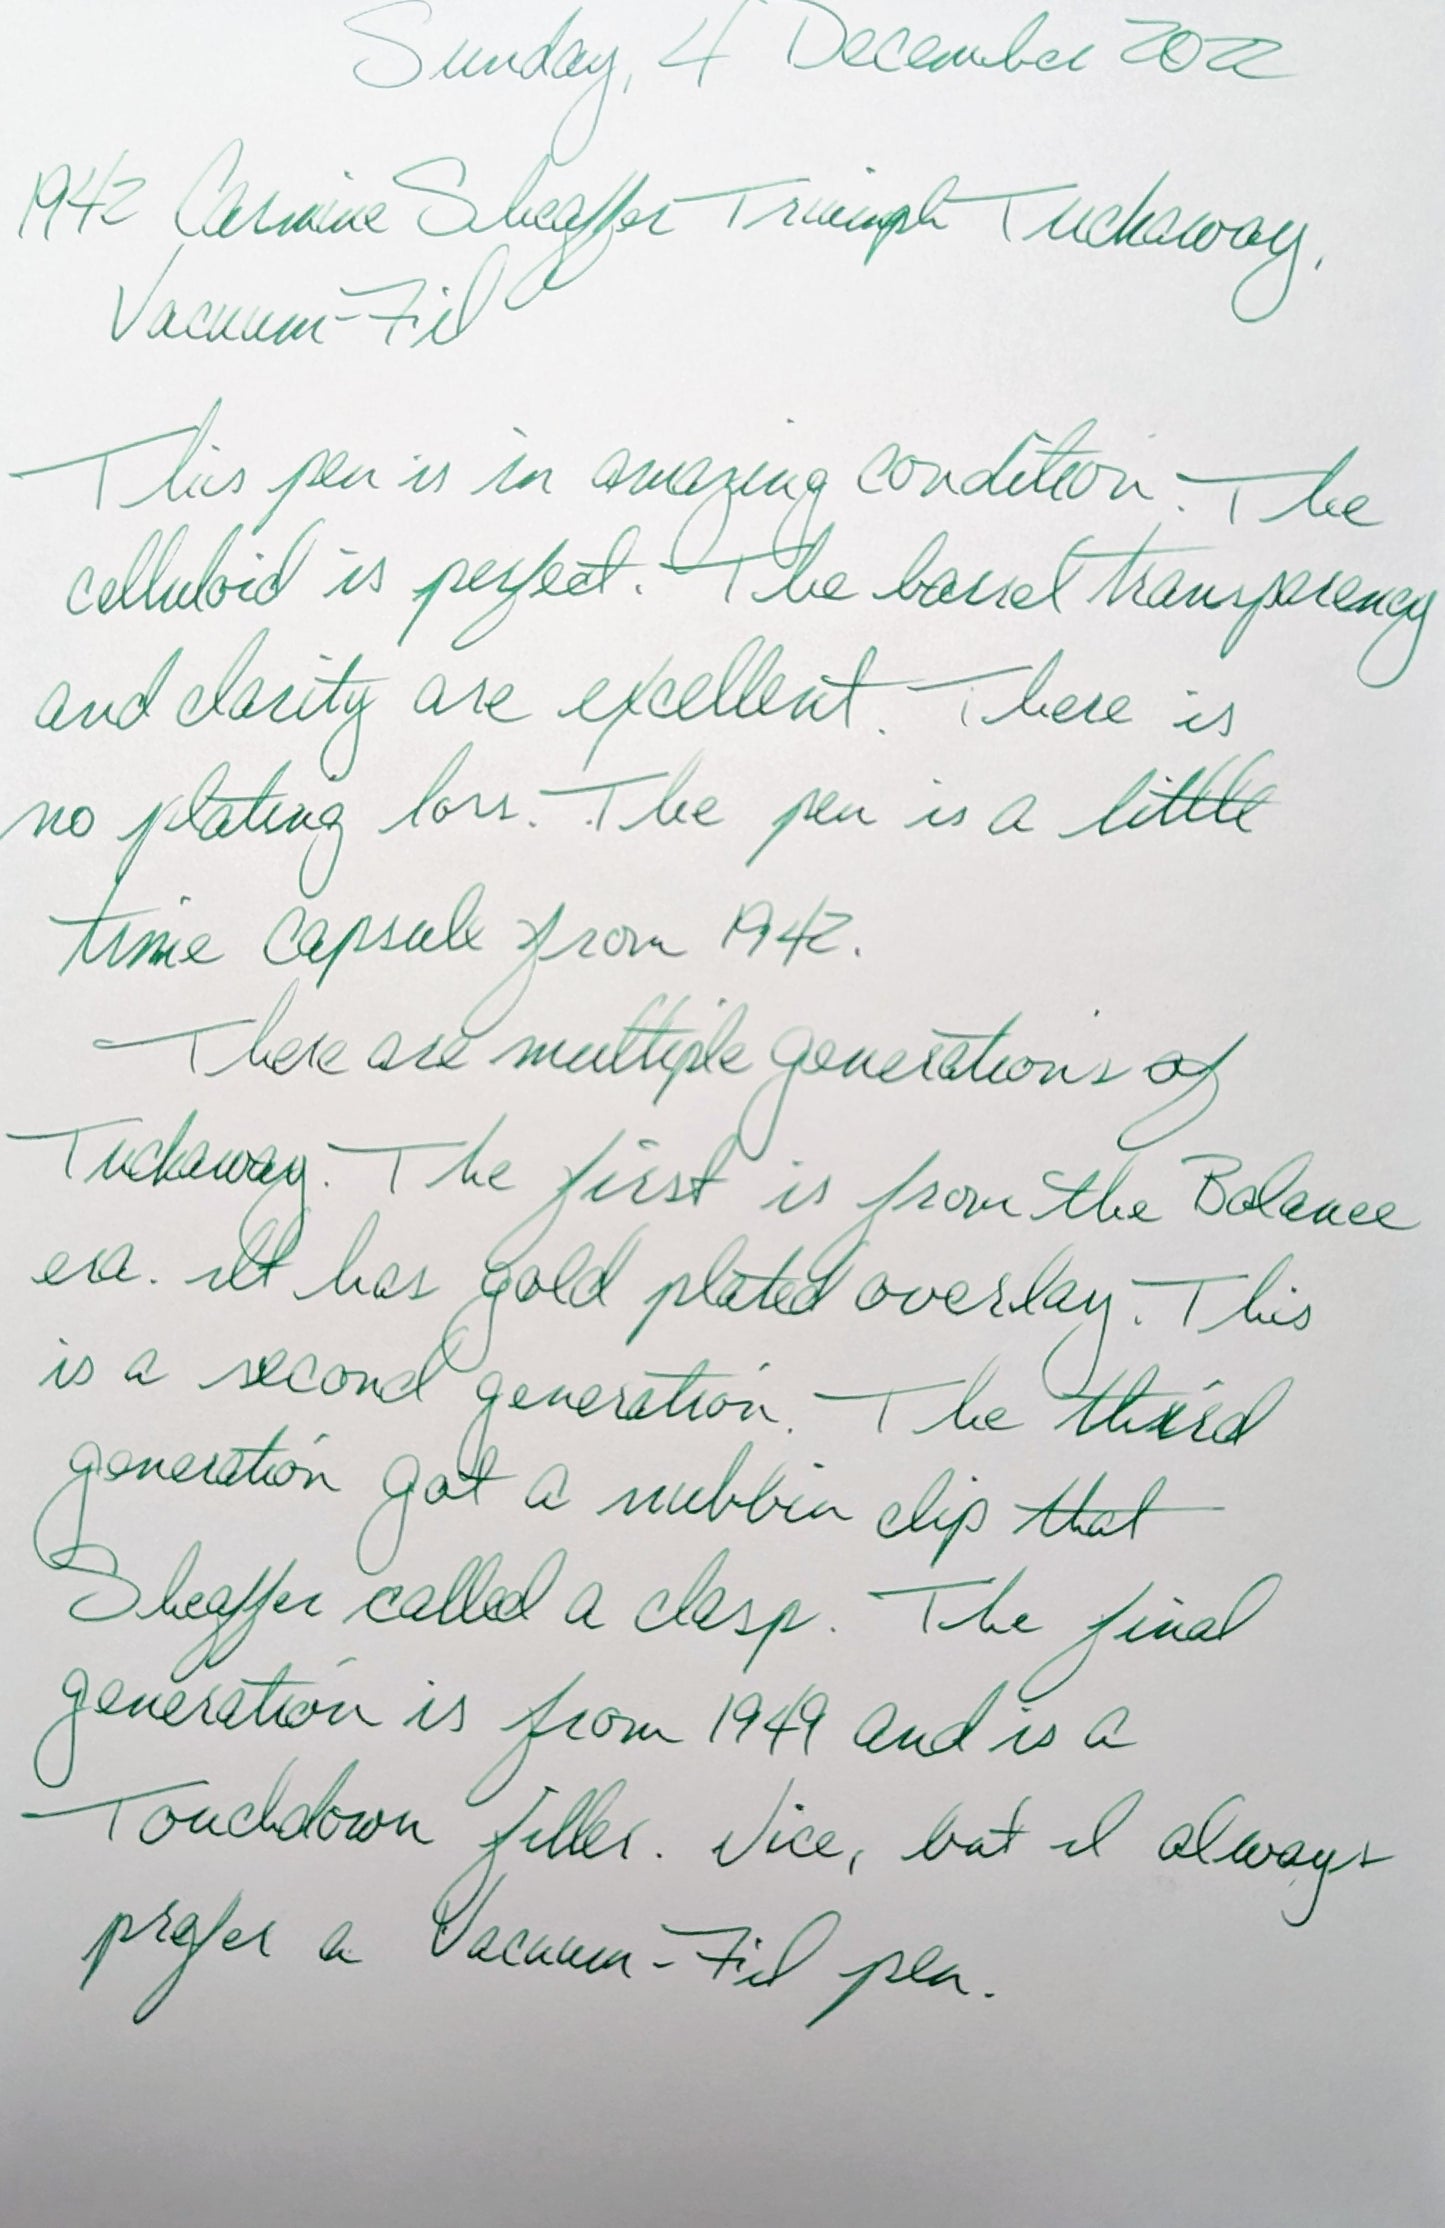 Sunday, 4 December 2022
1942 Carmine Sheaffer Triumph Tuckaway,
Vacuum-Fil
This pen is in amazing condition. The
celluloid is perfect. The barrel transparency
and clarity are excellent. There is
no plating loss. The pen is a little
time capsule from 1942.
There are multiple generations of
Tuckaway. The first is from the Balance
era. It has gold plated overlay. This
is a second generation. The third
generation got a nubbin clip that
Sheaffer called a clasp. The final
generation is from 1949 and is a
Touchdown filler. Nice, but I always
prefer a Vacuum-Fil pen.